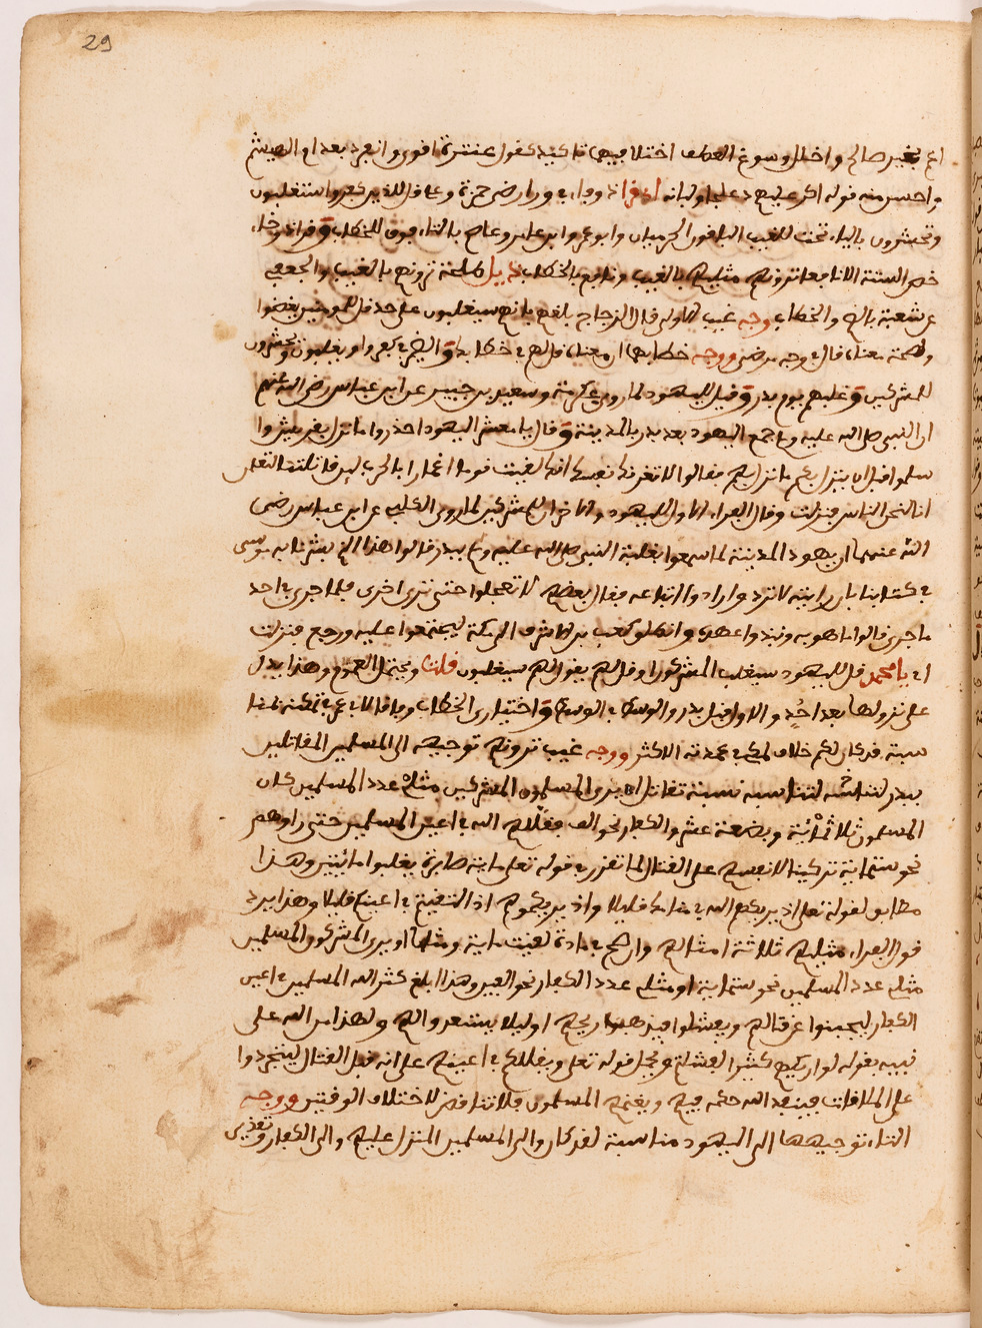 29
اع بغير صالح واختلا وسوغ العطف اختلا فيها تاكيد كقول عنترة اقوى وانفرد بعد ام الهيثم
واحسن منه قوله اكر عليهم دعلجا ولبانه وجاء ورا رضى حمزة وعا قل للذين كفروا ستغلبون
وتحشرون بالياء تحت للغيب الباقون الحرميان وابو عمرو وابن عامر وعاصم بالتاء فوق للخطاب
خص الستة الا نافعا ترونهم مثليهم بالغيب ونافع بالخطاب طلحة ترونهم بالغيب والجعفي
عن شعبة بالضم والخطاب وجه غيب الاوليه قال الزجاج بلغهم بانهم سيغلبون على حد قل للمؤمنين يغضوا
ووجه خطابهما ان معناه قل لهم في خطابك والضمير في كفروا ويغلبون ويحشرون
للمشركين وغلبهم يوم بدر وقيل لليهود لما روى عكرمة وسعيد بن جبير عن ابن عباس رضى الله عنهم
ان النبي صلى الله عليه وسلم جمع اليهود بعد بدر بالمدينة وقال يا معشر اليهود احذروا ما نزل بقريش وا
سلموا قبل ان ينزل بكم ما نزل بهم فقالوا لا تغرنك نفسك انك لقيت قوما اغمارا بالحرب لين قاتلتنا لتعلمن
انا لنحن الناس فنزلت وقال الفراء الاول لليهود والاخر للمشركين لما روى الكلبي عن ابن عباس رضى
الله عنهما ان يهود المدينة لما سمعوا بغلبة النبي صلى الله عليه وسلم ببدر قالوا هذا الذي بشرنا به موسى
في كتابنا بان رايته لا ترد وارادوا اتباعه فقال بعضهم لا تعجلوا حتى نرى اخرى فلما جرى في احد
ما جرى قالوا ما هو به ونبذوا عهده وانطلق كعب بن الاشرف الى مكة ليجتمعوا عليه ورجع فنزلت
اي يا محمد قل لليهود سيغلب المشركون او قل لهم يقول لهم سيغلبون قلت ويحتمل العموم وهذا يدل
على نزولها بعد احد والاول قبل بدر والوسط في الوسط واختياري الخطاب
سبة قد كان لكم خلافا لمكي عمدته الاكثر ووجه غيب ترونهم توجيهه الى المسلمين المقاتلين
ببدر لمناسبة نسبة تقاتل اي يرى المسلمون المشركين مثلي عدد المسلمين كان
المسلمون ثلاثمائة وبضعة عشر والكفار نحو الف فقللهم الله في اعين المسلمين حتى راوهم
نحو ستماية تركينا لانفسهم على القتال لما تقرر في قوله تعلى ماية صابرة يغلبوا مائتين وهذا
مطابق لقوله تعلى اذ يريكهم الله في منامك قليلا واذ يريكموهم اذ التقيتم في اعينكم قليلا وهذا يرد
قول الفراء مثليهم ثلاثة امثالهم وان صح في مادة لقيت ماية ومثلها او يرى المشركون المسلمين
مثلي عدد المسلمين نحو ستماية او مثلي عدد الكفار نحو الفين وهذا ابلغ كثر الله المسلمين في اعين
الكفار ليجبنوا عن قتالهم ويفشلوا فيذهب ريحهم او ليلا يستعدوا لهم ولهذا من الله على
نبيه بقوله لو اريكهم كثيرا لفشلتم ومحل قوله تعلى ويقللكم في اعينهم على انه قبل القتال ليتجردوا
على الملاقات فينفذ الله حكمه فيهم ويغنمهم المسلمون فلا تناقض لاختلاف الوقتين ووجه
التاء توجيهها الى اليهود مناسبة لقد كان والى المسلمين المنزل عليهم والى الكفار وتقديره